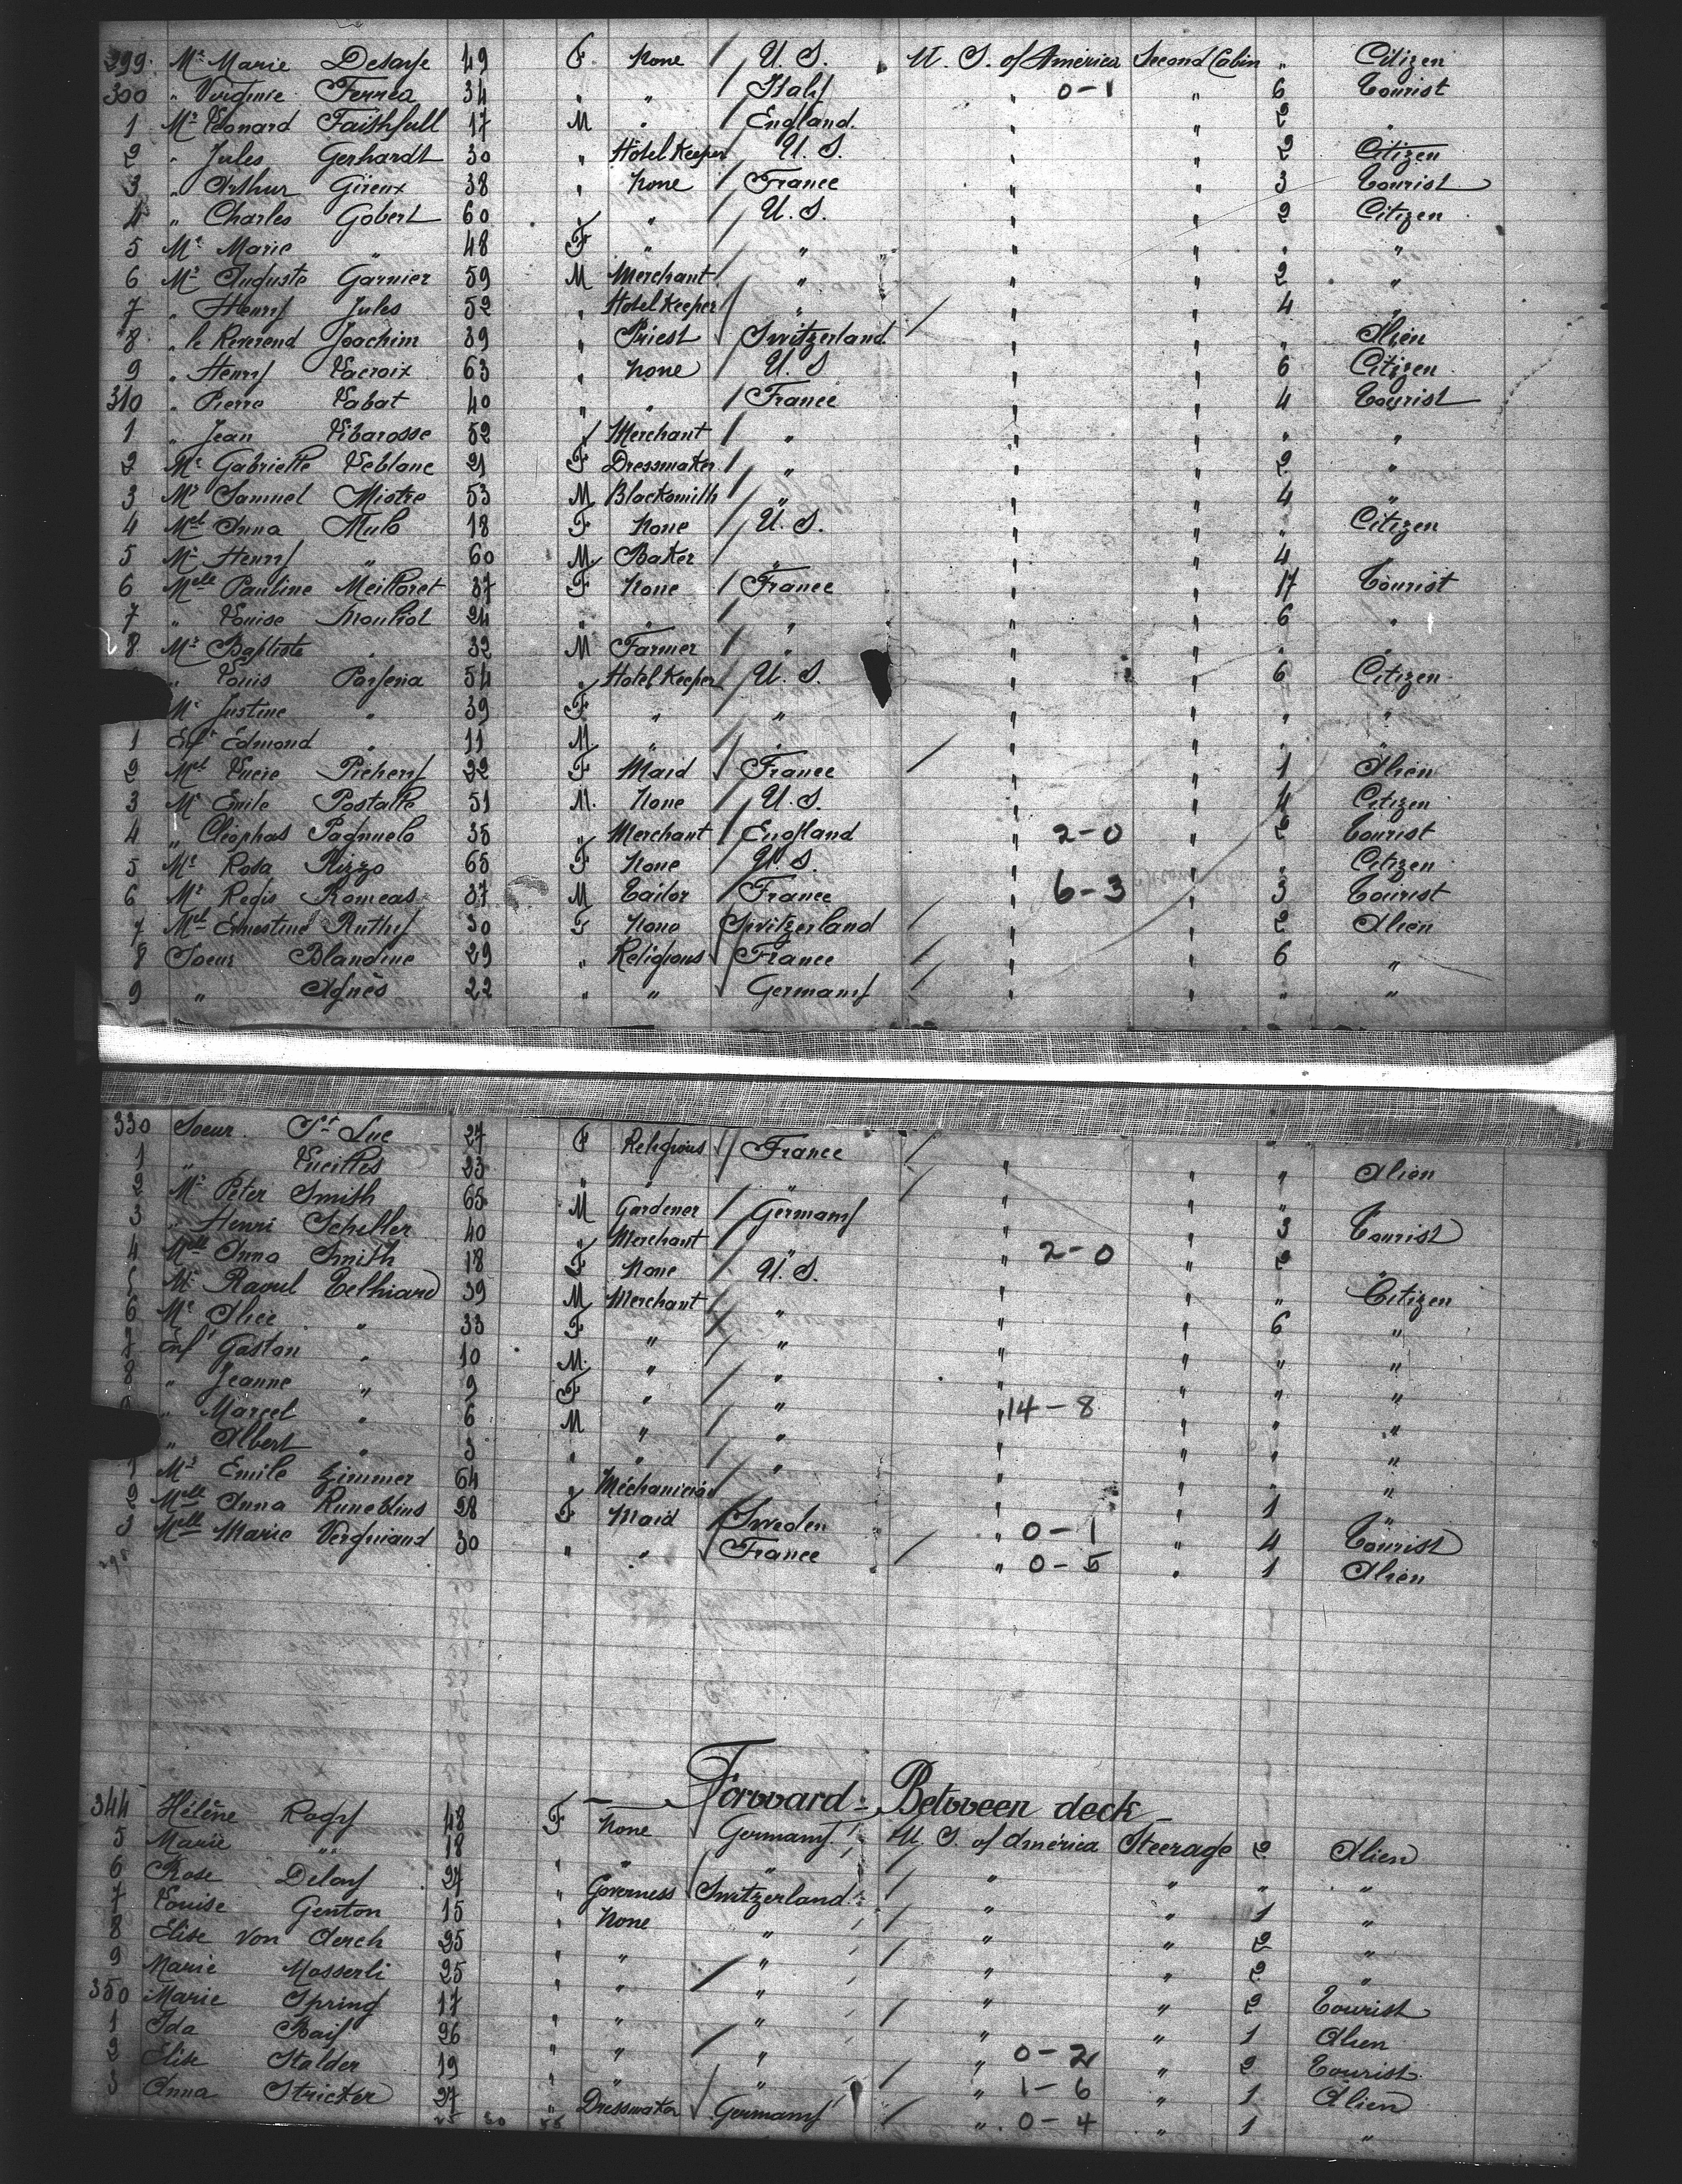 299 Me Marie Desarse 49 F. None / U. S. U. S. of America Second Cabin " Citizen
300 " Virginie Ferrea 34 " " / Italy " 0-1 " 6 Tourist
1 Mr Léonard Faithfull 17 M " / England. " " 2 "
2 " Jules Gerhardt 30 " Hotel Keeper / U. S. " " 2 Citizen
3 " Arthur Gireux 38 " None / France " " 3 Tourist
4 " Charles Gobert 60 " " / U. S. " " 2 Citizen
5 Me Marie " 48 F " / " " " " "
6 Mr Auguste Garnier 59 M Merchant / " " " 2 "
7 " Henry Jules 52 " Hotel Keeper / " " " 4 "
8 " le Reverend Joachim 39 " Priest / Switzerland / " " " Alien
9 " Henry Lacroix 63 " None / U. S " " 6 Citizen
310 " Pierre Labat 40 " " / France " " 4 Tourist
1 " Jean Libarosse 52 " Merchant / " " " " "
2 Me Gabrielle Leblanc 21 F Dressmaker / " " " 2 "
3 Mr Samuel Mistre 53 M Blacksmith / " " " 4 "
4 Mel Anna Mulo 18 F None / U. S. " " " Citizen
5 Mr Henry " 60 M Baker / " " " 4 "
6 Melle Pauline Meilloret 37 F None / France " " 17 Tourist
7 " Louise Mouliot 24 " " / " " " 6 "
8 Mr Baptiste " 32 M Farmer / " " " " "
" Louis Porsena 54 " Hotel Keeper / U. S. " " 6 Citizen
Me Justine " 39 F " / " " " " "
1 Enft Edmond " 11 M. " / " " " " "
2 Mel Lucie Picheny 22 F Maid / France / " " 1 Alien
3 Mr Emile Postalle 51 M. None / U. S. " " 4 Citizen
4 " Cléophas Pagnuelo 35 " Merchant / England " 2-0 " 2 Tourist
5 Me Rosa Rizzo 65 F None / U. S. " " " Citizen
6 Mr Regis Romeas 37 M Tailor / France " 6-3 " 3 Tourist
7 Mel Ernestine Ruthy 30 F None Switzerland / " " 2 Alien
8 Soeur Blandine 29 " Religious / France / " " 6 "
9 " Agnès 22 " " / Germany / " " " "
330 Soeur St Luc 27 F Religious / France / " " " Alien
1 " Lucilles 23 " " / " / " " " "
2 Mr Peter Smith 65 M Gardener / Germany " " 3 Tourist
3 " Henri Scheller 40 " Merchant / " " 2-0 " 2 "
4 Melle Anna Smith 18 F None / U. S. " " " Citizen
5 Mr Raoul Telhiard 39 M Merchant / " " " 6 "
6 Me Alice " 33 F " / " " " " "
7 Enft Gaston " 10 M. " / " " " " "
8 " Jeanne " 9 F " / " " 14-8 " " "
" Marcel " 6 M " / " " " " "
" Albert " 3 " " / " " " " "
1 Mr Emile Zimmer 64 " Méchanician / " " " 1 "
2 Melle Anna Runeblins 28 F Maid / Sweden " 0-1 " 4 Tourist
3 Melle Marie Vergniaud 30 " " / France / " 0-5 " 1 Alien
Forward - Between deck
344 Hélène Rogy 48 F None Germany / U. S. of America Steerage 2 Alien
5 Marie " 18 " " / " / " " " "
6 Rose Delay 27 " Governess / Switzerland / " " 1 "
7 Louise Genton 15 " None " / " " 2 "
8 Elise Von Aerch 25 " " / " / " " 2 "
9 Marie Mosserli 25 " " " " " 2 Tourist
350 Marie Spring 17 " " / " / " " 1 Alien
1 Ida Baif 26 " " / " " 0-2 " 2 Tourist
2 Elise Stalder 19 " " / " / " 1-6 " 1 Alien
3 Anna Stricker 27 " Dressmaker / Germany / " 0-4 " 1 "